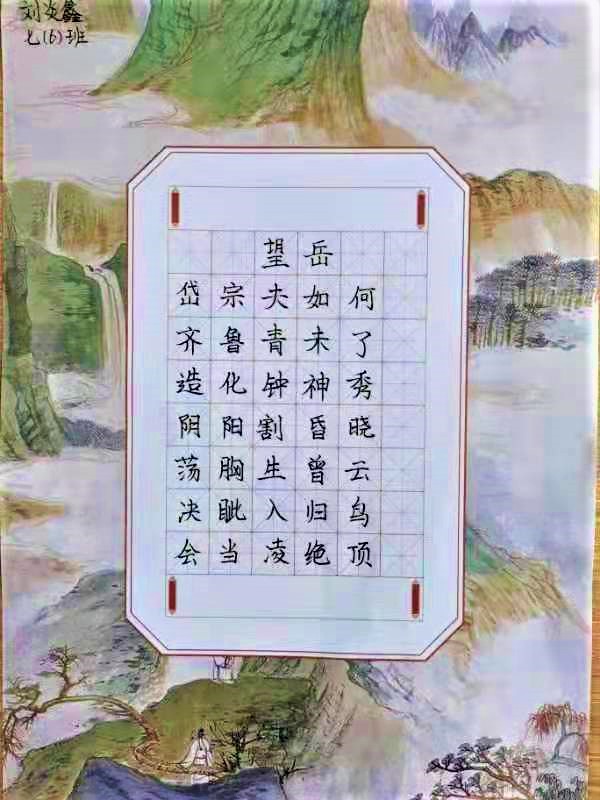 刘炎鑫
七(6)班
望岳
岱宗夫如何
齐鲁青未了
造化钟神秀
阴阳割昏晓
荡胸生曾云
决眦入归鸟
会当凌绝顶